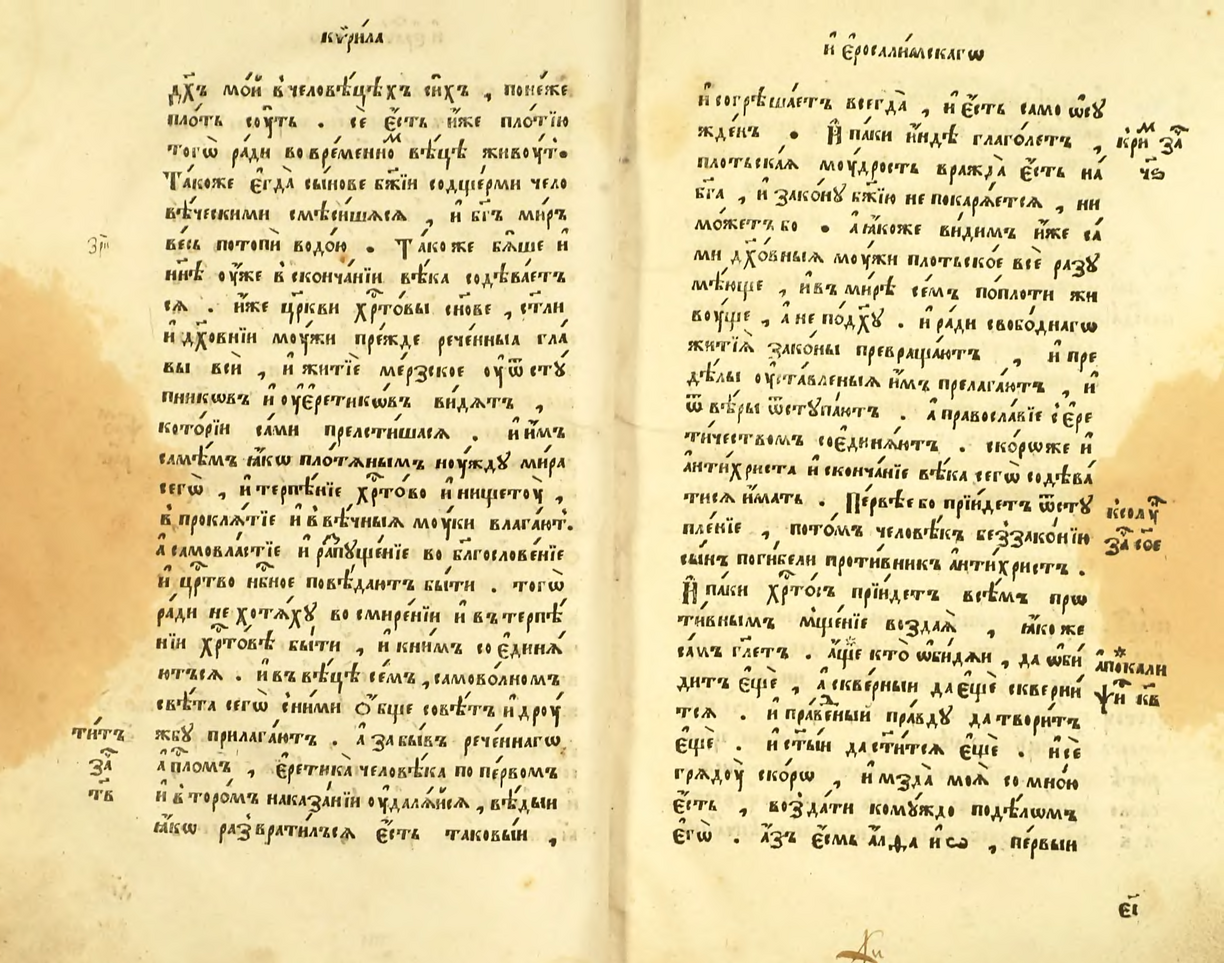 кѷрі́ла
дх҃ъ мо́й в̾человѣ́цѣхъ си́хъ , поне́же
пло́ть сꙋ́ть . се̏ є҆́сть и҆́же пло́тїю
тогѡ̀ ра́ди во вре́менноⷨ вѣ́цѣ живоу́тъ.
Та́коже є҆гда̀ сы́нове бж҃їи содще́рми чело
вѣ́ческими смѣси́шасѧ , и҆ бг҃ъ ми́ръ
ве́сь потопѝ водо́ю . Та́ко же бѧ́ше и҆
нн҃ѣ оу҆́же в̾сконча́нїи вѣ́ка содѣва́етъ
сѧ . и҆́же цр҃кви хрⷭ҇то́вы сн҃ове , ст҃ли
и҆ дх҃о́внїи моу́жи пре́жде рече́нныѧ гла
вы̀ всѝ , и҆ житїѐ ме́рзское оу҆ ѿстꙋ́
пникѡвъ и҆ оу҆є҆ретикѡ́въ ви́дѧтъ ,
кото́рїи са́ми прелсти́шасѧ . и҆ и҆̀мъ
самѣ́мъ ꙗ҆́кѡ плотѧ́нымъ ноу́ждꙋ ми́ра
сегѡ̀ , и҆ терпѣ́нїе хрⷭ҇то́во и҆ нищетоу̀ ,
в̾ прокла́тїе и҆ в̾вѣ́чныѧ моу́ки влага́ютъ.
а҆ самовла́стїе и҆ распꙋще́нїе во блгⷭ҇ослове́нїе
и҆ црⷭ҇тво нб҃ное повѣ́даютъ бы́ти . тогѡ̀
ра́ди не хотѧ́хꙋ во смире́нїи и҆ в̾ терпѣ́
нїи хрⷭ҇то́вѣ бы́ти , и҆ книмъ соє҆динѧ́
ютъсѧ . и҆ в̾ вѣ́цѣ се́мъ , самово́лномъ
свѣ́та сегѡ̀ с̾ними ѻ҆́бще совѣ́тъ и҆ дроу́
жбꙋ прилага́ютъ . а҆ забы́въ рече́ннагѡ
а҆пⷭ҇ломъ , є҆рети́ка человѣ́ка по пе́рвомъ
и҆ в̾торо́мъ наказа́нїи оу҆далѧ́йсѧ , вѣ́дыи
ꙗ҆́кѡ развратилъсѧ є҆́сть таковы́и ,
ти́тъ
заⷱ҇
т҃в
и҆ є҆росали́мскагѡ
и҆ согрѣша́етъ всегда̀ , и҆ є҆́сть само ѡ҆сꙋ
жде́нъ . И҆ па́ки и҆́ндѣ глаго́летъ ,
пло́тьскаѧ моу́дрость вражда̀ є҆́сть на́
бг҃а , и҆ зако́нꙋ бж҃їю не покарѧ́етсѧ , ни
мо́жетъ бо . а҆ ꙗ҆́коже ви́димъ и҆́же са́
ми дх҃о́вныѧ моу́жи плотьско́е всѐ разꙋ
мѣ́юще , и҆ в̾ ми́рѣ се́мъ поплоти жи
воу́ще , а҆ не по дх҃ꙋ . и҆ ради свобо́днагѡ
житїѧ̀ зако́ны превраща́ютъ , и҆ пре
дѣ́лы оу҆ста́вленыѧ и҆́мъ прелага́ютъ , и҆
ѿ вѣ́ры ѿстꙋпа́ютъ . а҆ правосла́вїе с̾є҆ре
ти́чествомъ соє҆динѧ́ютъ . ско́рѡ же и҆
а҆нтихри́ста и҆ сконча́нїе вѣ́ка сегѡ̀ содѣва́
тисѧ и҆́мать . Пе́рвѣе бо прїи́детъ ѿстꙋ
пле́нїе , пото́мъ человѣ́къ беззако́нїю
сы́нъ поги́бели проти́вникъ а҆нти́христъ .
И҆ па́ки хрⷭ҇то́съ прїи́детъ всѣ́мъ прѡ
ти́внымъ мще́нїе воздаѧ̀ , ꙗ҆́ко же
са́мъ гл҃етъ . а҆́ще кто̀ ѡ҆би́дѧи , да ѡ҆би́
дитъ є҆щѐ , а҆ скве́рныи да є҆щѐ скверни́
тсѧ . и҆ пра́веⷣный пра́вдꙋ да твори́тъ
є҆щѐ . и҆ ст҃ы́и да ст҃и́тсѧ є҆щѐ . и҆ сѐ
грѧдоу̀ ско́рѡ , и҆ мзда̀ моѧ̀ со мно́ю
є҆́сть , возда́ти комꙋ́ждо подѣ́лѡмъ
є҆гѡ̀ . а҆́зъ є҆́смь а҆́лфа и҆ ѡ , пе́рвыи
к̾риⷨ заⷱ҇
ч҃ѕ
к̾солꙋⷩ҇
заⷱ҇ с҃ое
а҆пока́ли
ѱи к҃в
є҃і